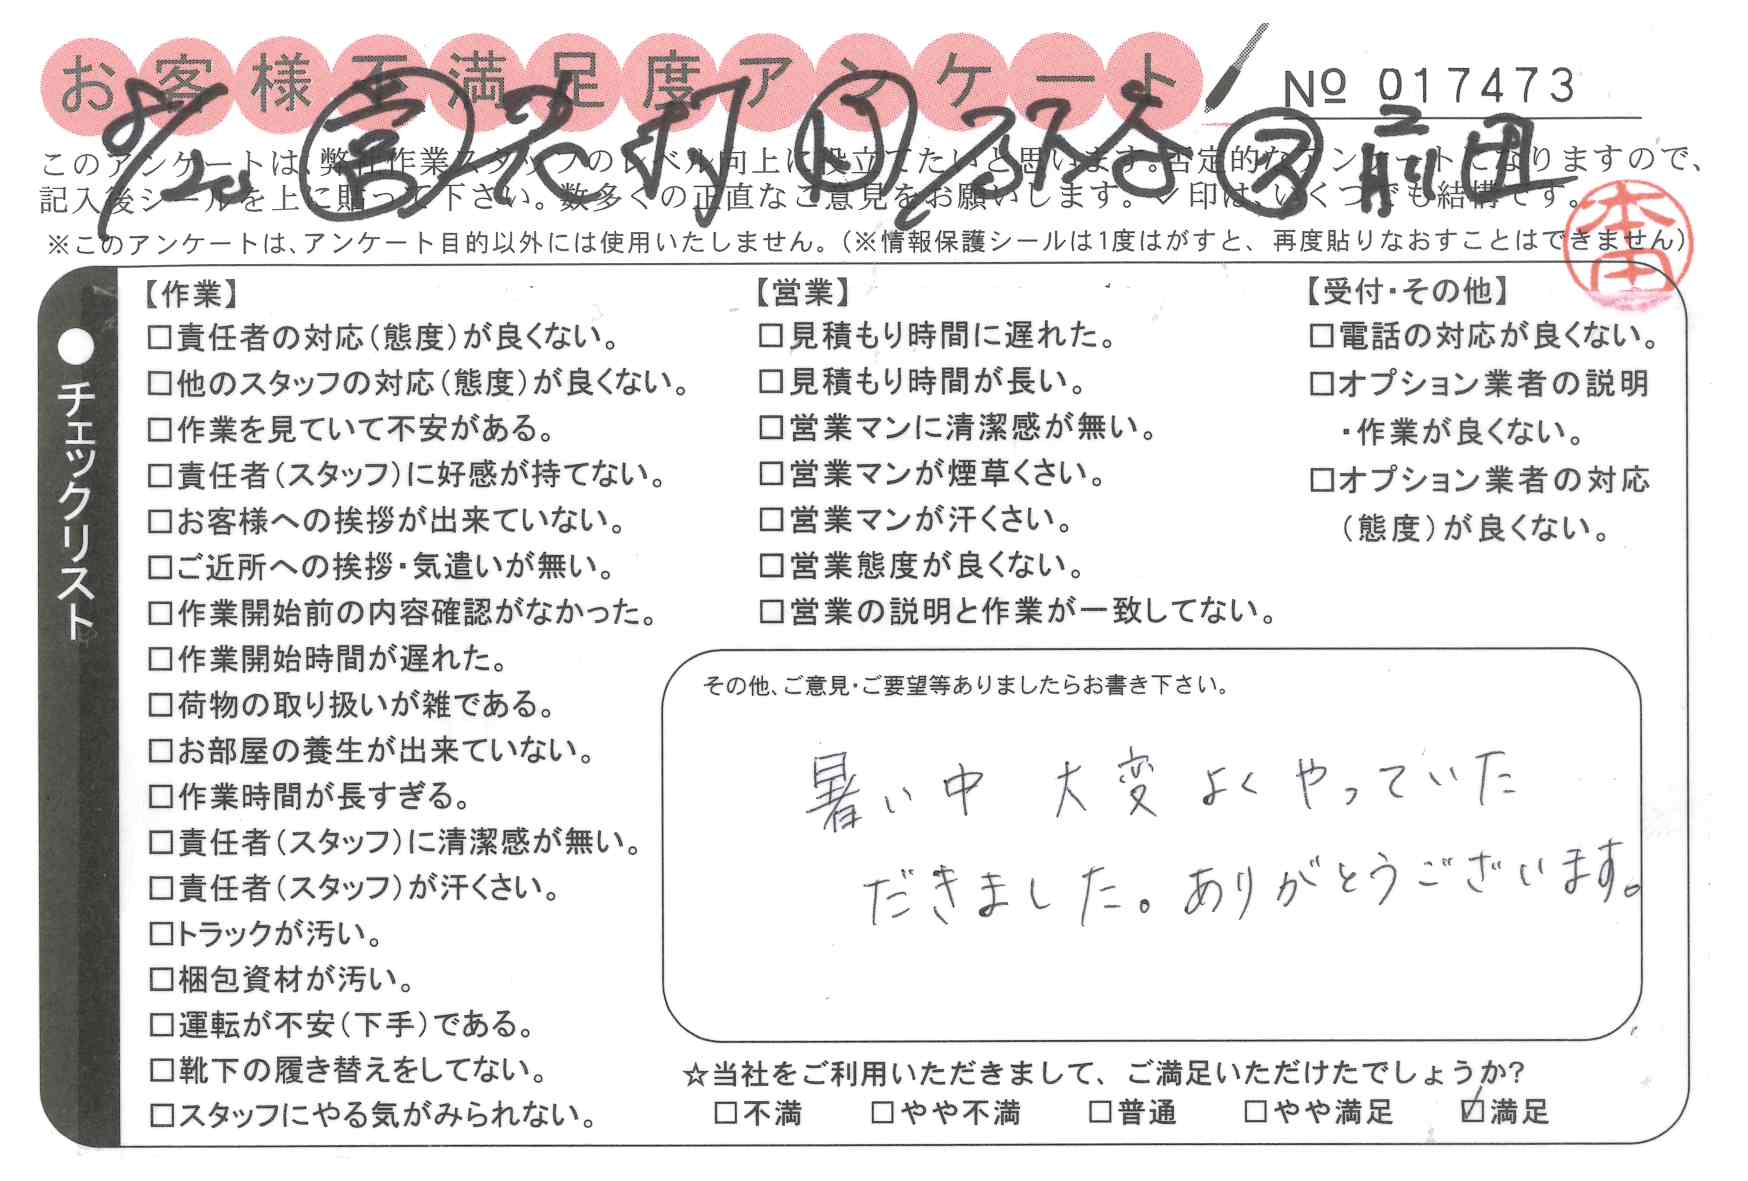 お客様不満足度アンケート
№ 017473
8/20 営 リ ス
このアンケートは、弊社作業スタッフのレベル向上に役立てたいと思います。否定的なアンケートになりますので、
記入後シールを上に貼って下さい。数多くの正直なご意見をお願いします。✓印は、いくつでも結構です。
※このアンケートは、アンケート目的以外には使用いたしません。（※情報保護シールは1度はがすと、再度貼りなおすことはできません）
●チェックリスト
【作業】
□責任者の対応（態度）が良くない。
□他のスタッフの対応（態度）が良くない。
□作業を見ていて不安がある。
□責任者（スタッフ）に好感が持てない。
□お客様への挨拶が出来ていない。
□ご近所への挨拶・気遣いが無い。
□作業開始前の内容確認がなかった。
□作業開始時間が遅れた。
□荷物の取り扱いが雑である。
□お部屋の養生が出来ていない。
□作業時間が長すぎる。
□責任者（スタッフ）に清潔感が無い。
□責任者（スタッフ）が汗くさい。
□トラックが汚い。
□梱包資材が汚い。
□運転が不安（下手）である。
□靴下の履き替えをしてない。
□スタッフにやる気がみられない。
【営業】
□見積もり時間に遅れた。
□見積もり時間が長い。
□営業マンに清潔感が無い。
□営業マンが煙草くさい。
□営業マンが汗くさい。
□営業態度が良くない。
□営業の説明と作業が一致してない。
【受付・その他】
□電話の対応が良くない。
□オプション業者の説明
・作業が良くない。
□オプション業者の対応
（態度）が良くない。
その他、ご意見・ご要望等ありましたらお書き下さい。
暑い中 大変よくやっていた
だきました。ありがとうございます。
☆当社をご利用いただきまして、ご満足いただけたでしょうか？
□不満 □やや不満 □普通 □やや満足 ☑満足